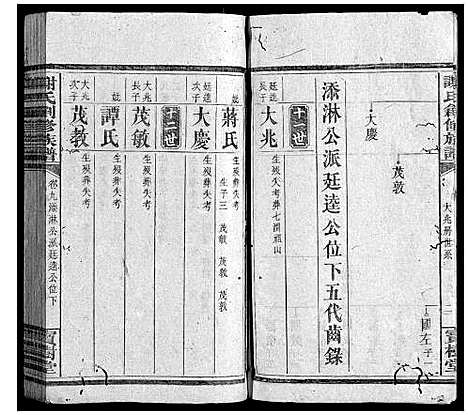 謝氏創修族譜
寶樹堂
大慶
茂敦
添淋公派廷逵公位下五代齒錄
十一世
大兆
生歿考葬七淵福山
廷逵次子
大慶
生歿葬失考
妣蔣氏
生歿葬失考
生子三 茂敏 茂敦 茂教
十二世
大兆長子
茂敏
生歿葬失考
妣譚氏
生歿葬失考
大兆次子
茂教
生歿葬失考
謝氏創修族譜
卷九添淋公派廷逵公位下
寶樹堂